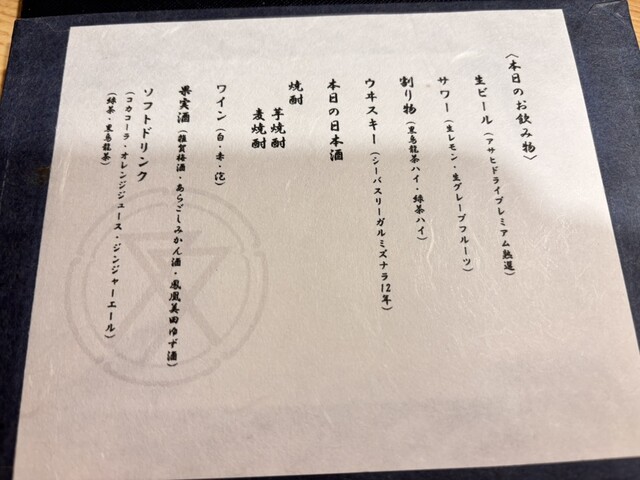 〈本日のお飲み物〉
生ビール（アサヒドライプレミアム熟選）
サワー（生レモン・生グレープフルーツ）
割り物（黒烏龍茶ハイ・緑茶ハイ）
ウヰスキー（シーバスリーガルミズナラ12年）
本日の日本酒
焼酎
芋焼酎
麦焼酎
ワイン（白・赤・泡）
果実酒（雑賀梅酒・あらごしみかん酒・鳳凰美田ゆず酒）
ソフトドリンク
（コカコーラ・オレンジジュース・ジンジャーエール）
（緑茶・黒烏龍茶）